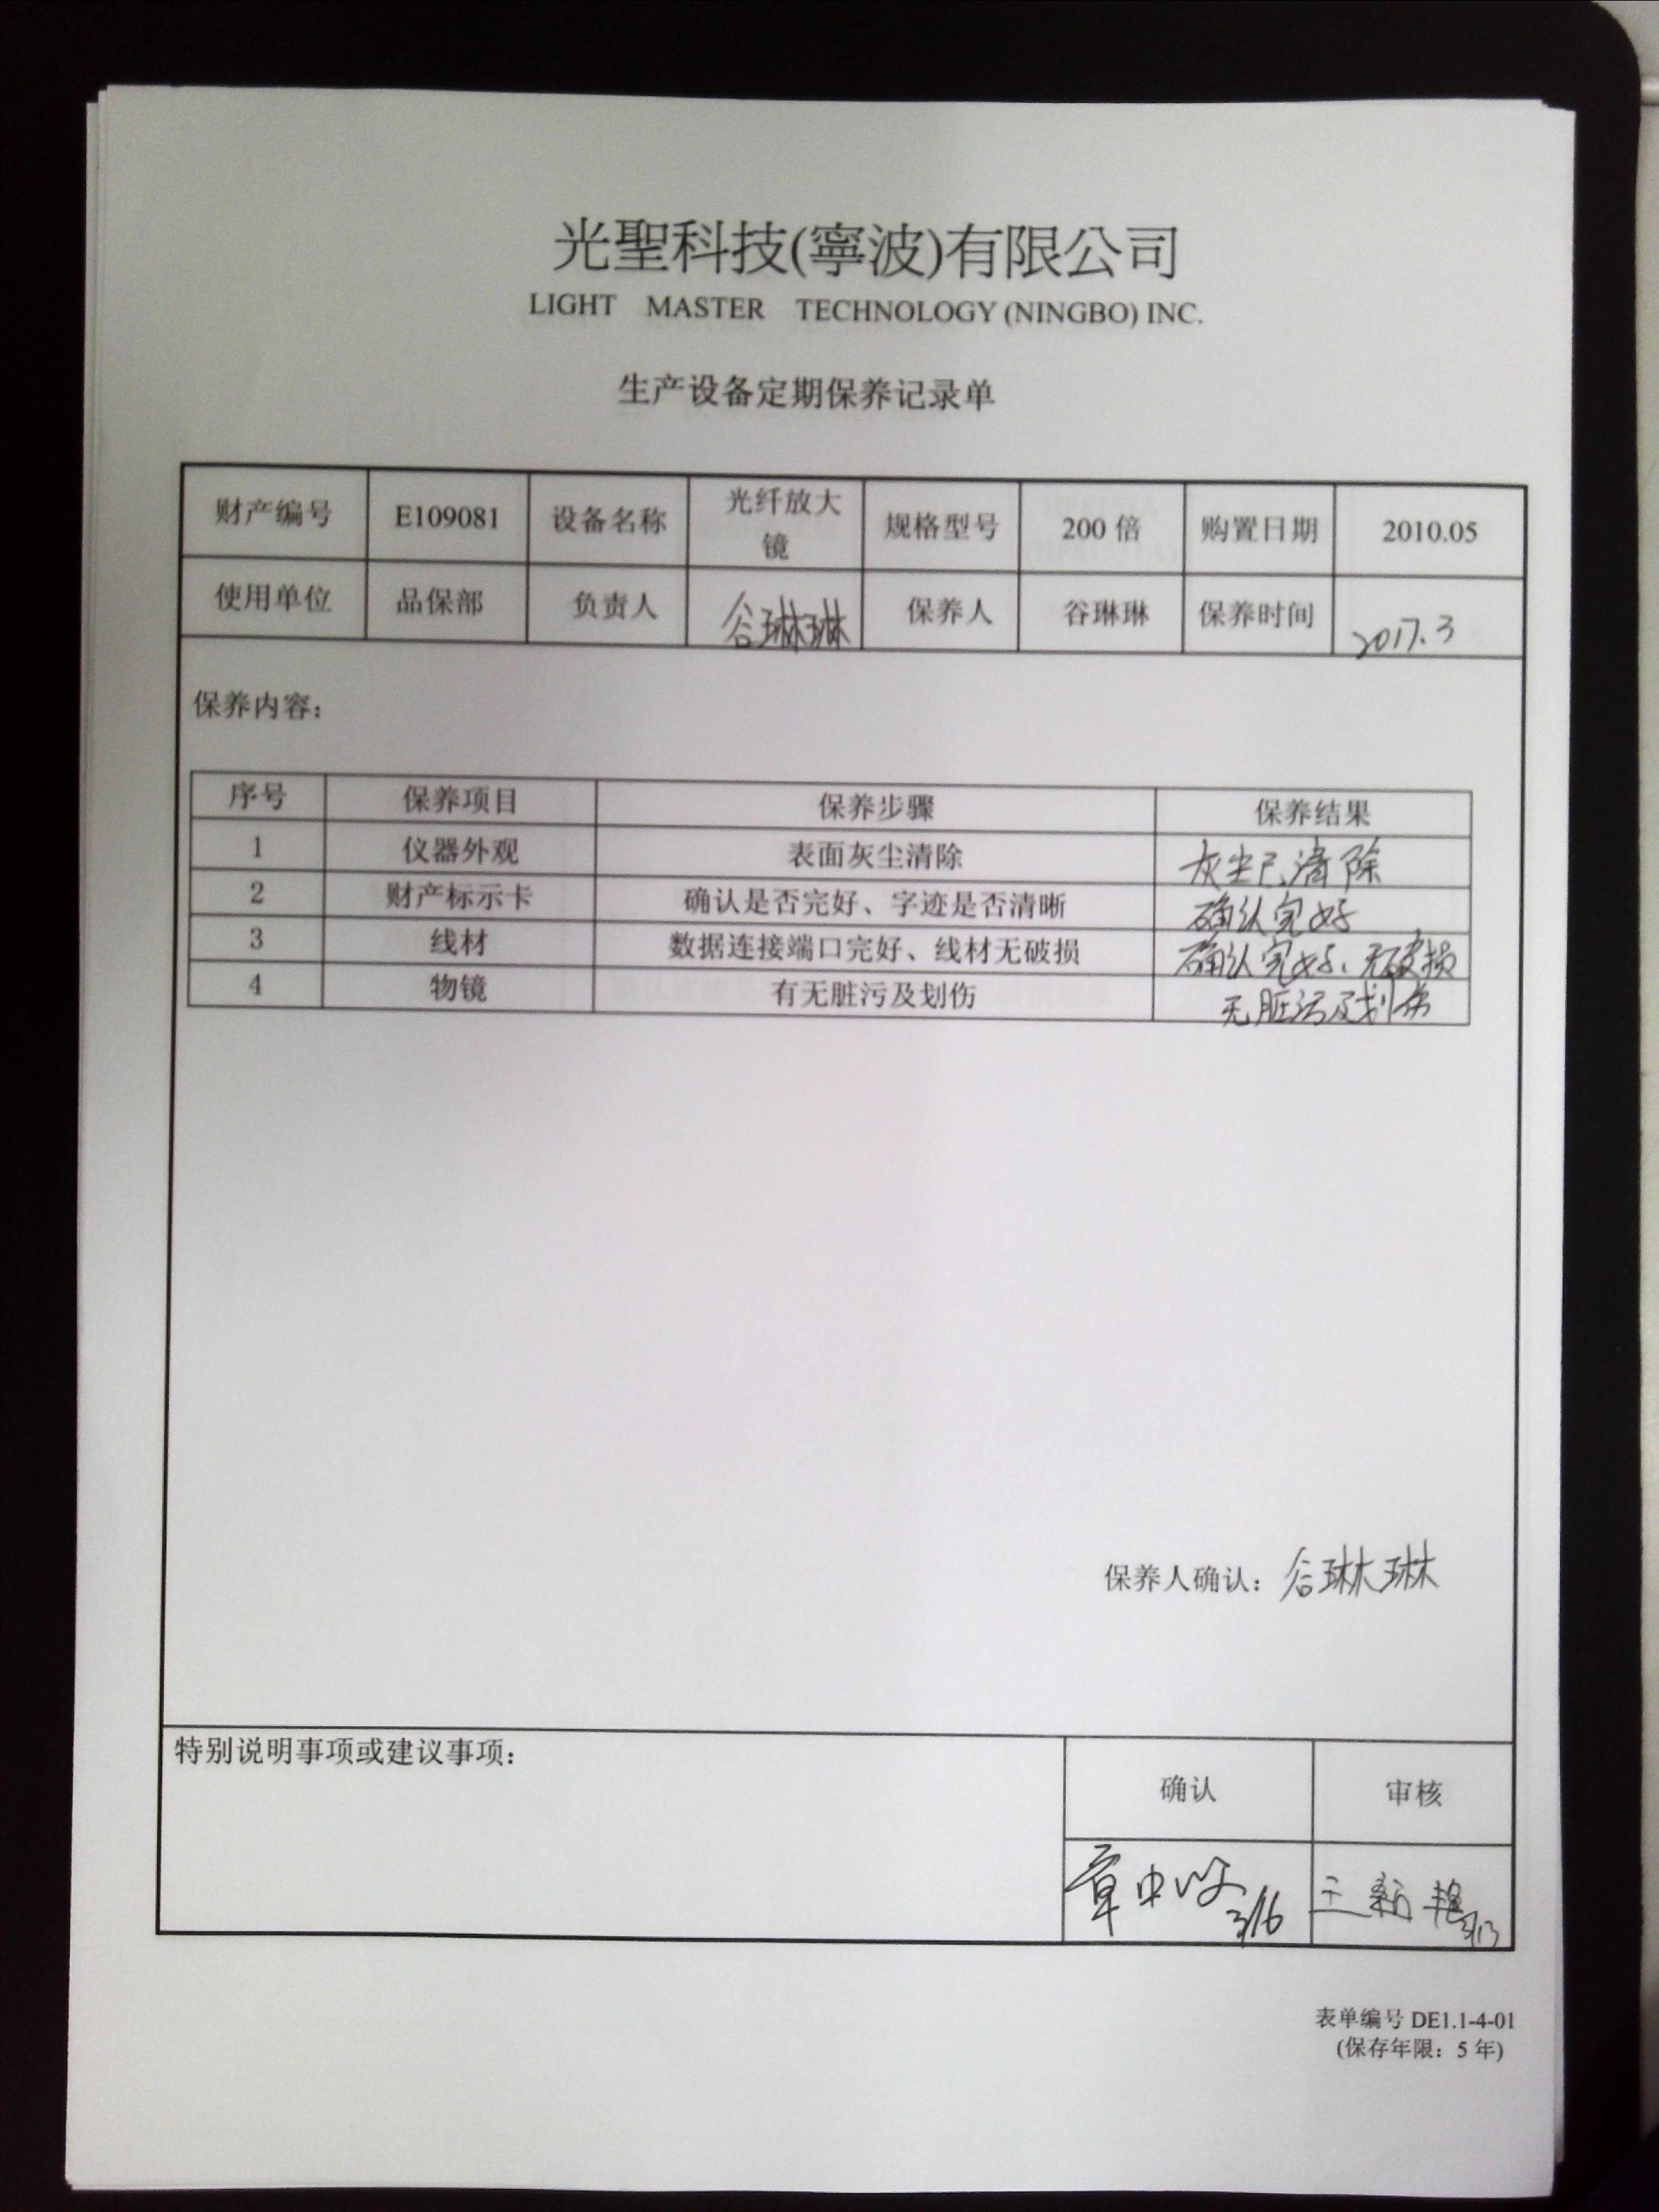 光聖科技(寧波)有限公司
LIGHT MASTER TECHNOLOGY (NINGBO) INC.
生产设备定期保养记录单
财产编号 E109081 设备名称 光纤放大镜 规格型号 200 倍 购置日期 2010.05
使用单位 品保部 负责人 谷琳琳 保养人 谷琳琳 保养时间 2017.3
保养内容：
序号 保养项目 保养步骤 保养结果
1 仪器外观 表面灰尘清除 灰尘已清除
2 财产标示卡 确认是否完好、字迹是否清晰 确认完好
3 线材 数据连接端口完好、线材无破损 确认完好、无破损
4 物镜 有无脏污及划伤 无脏污及划伤
保养人确认：谷琳琳
特别说明事项或建议事项：
确认 审核
3/16 王新艳 3/13
表单编号 DE1.1-4-01
(保存年限：5 年)